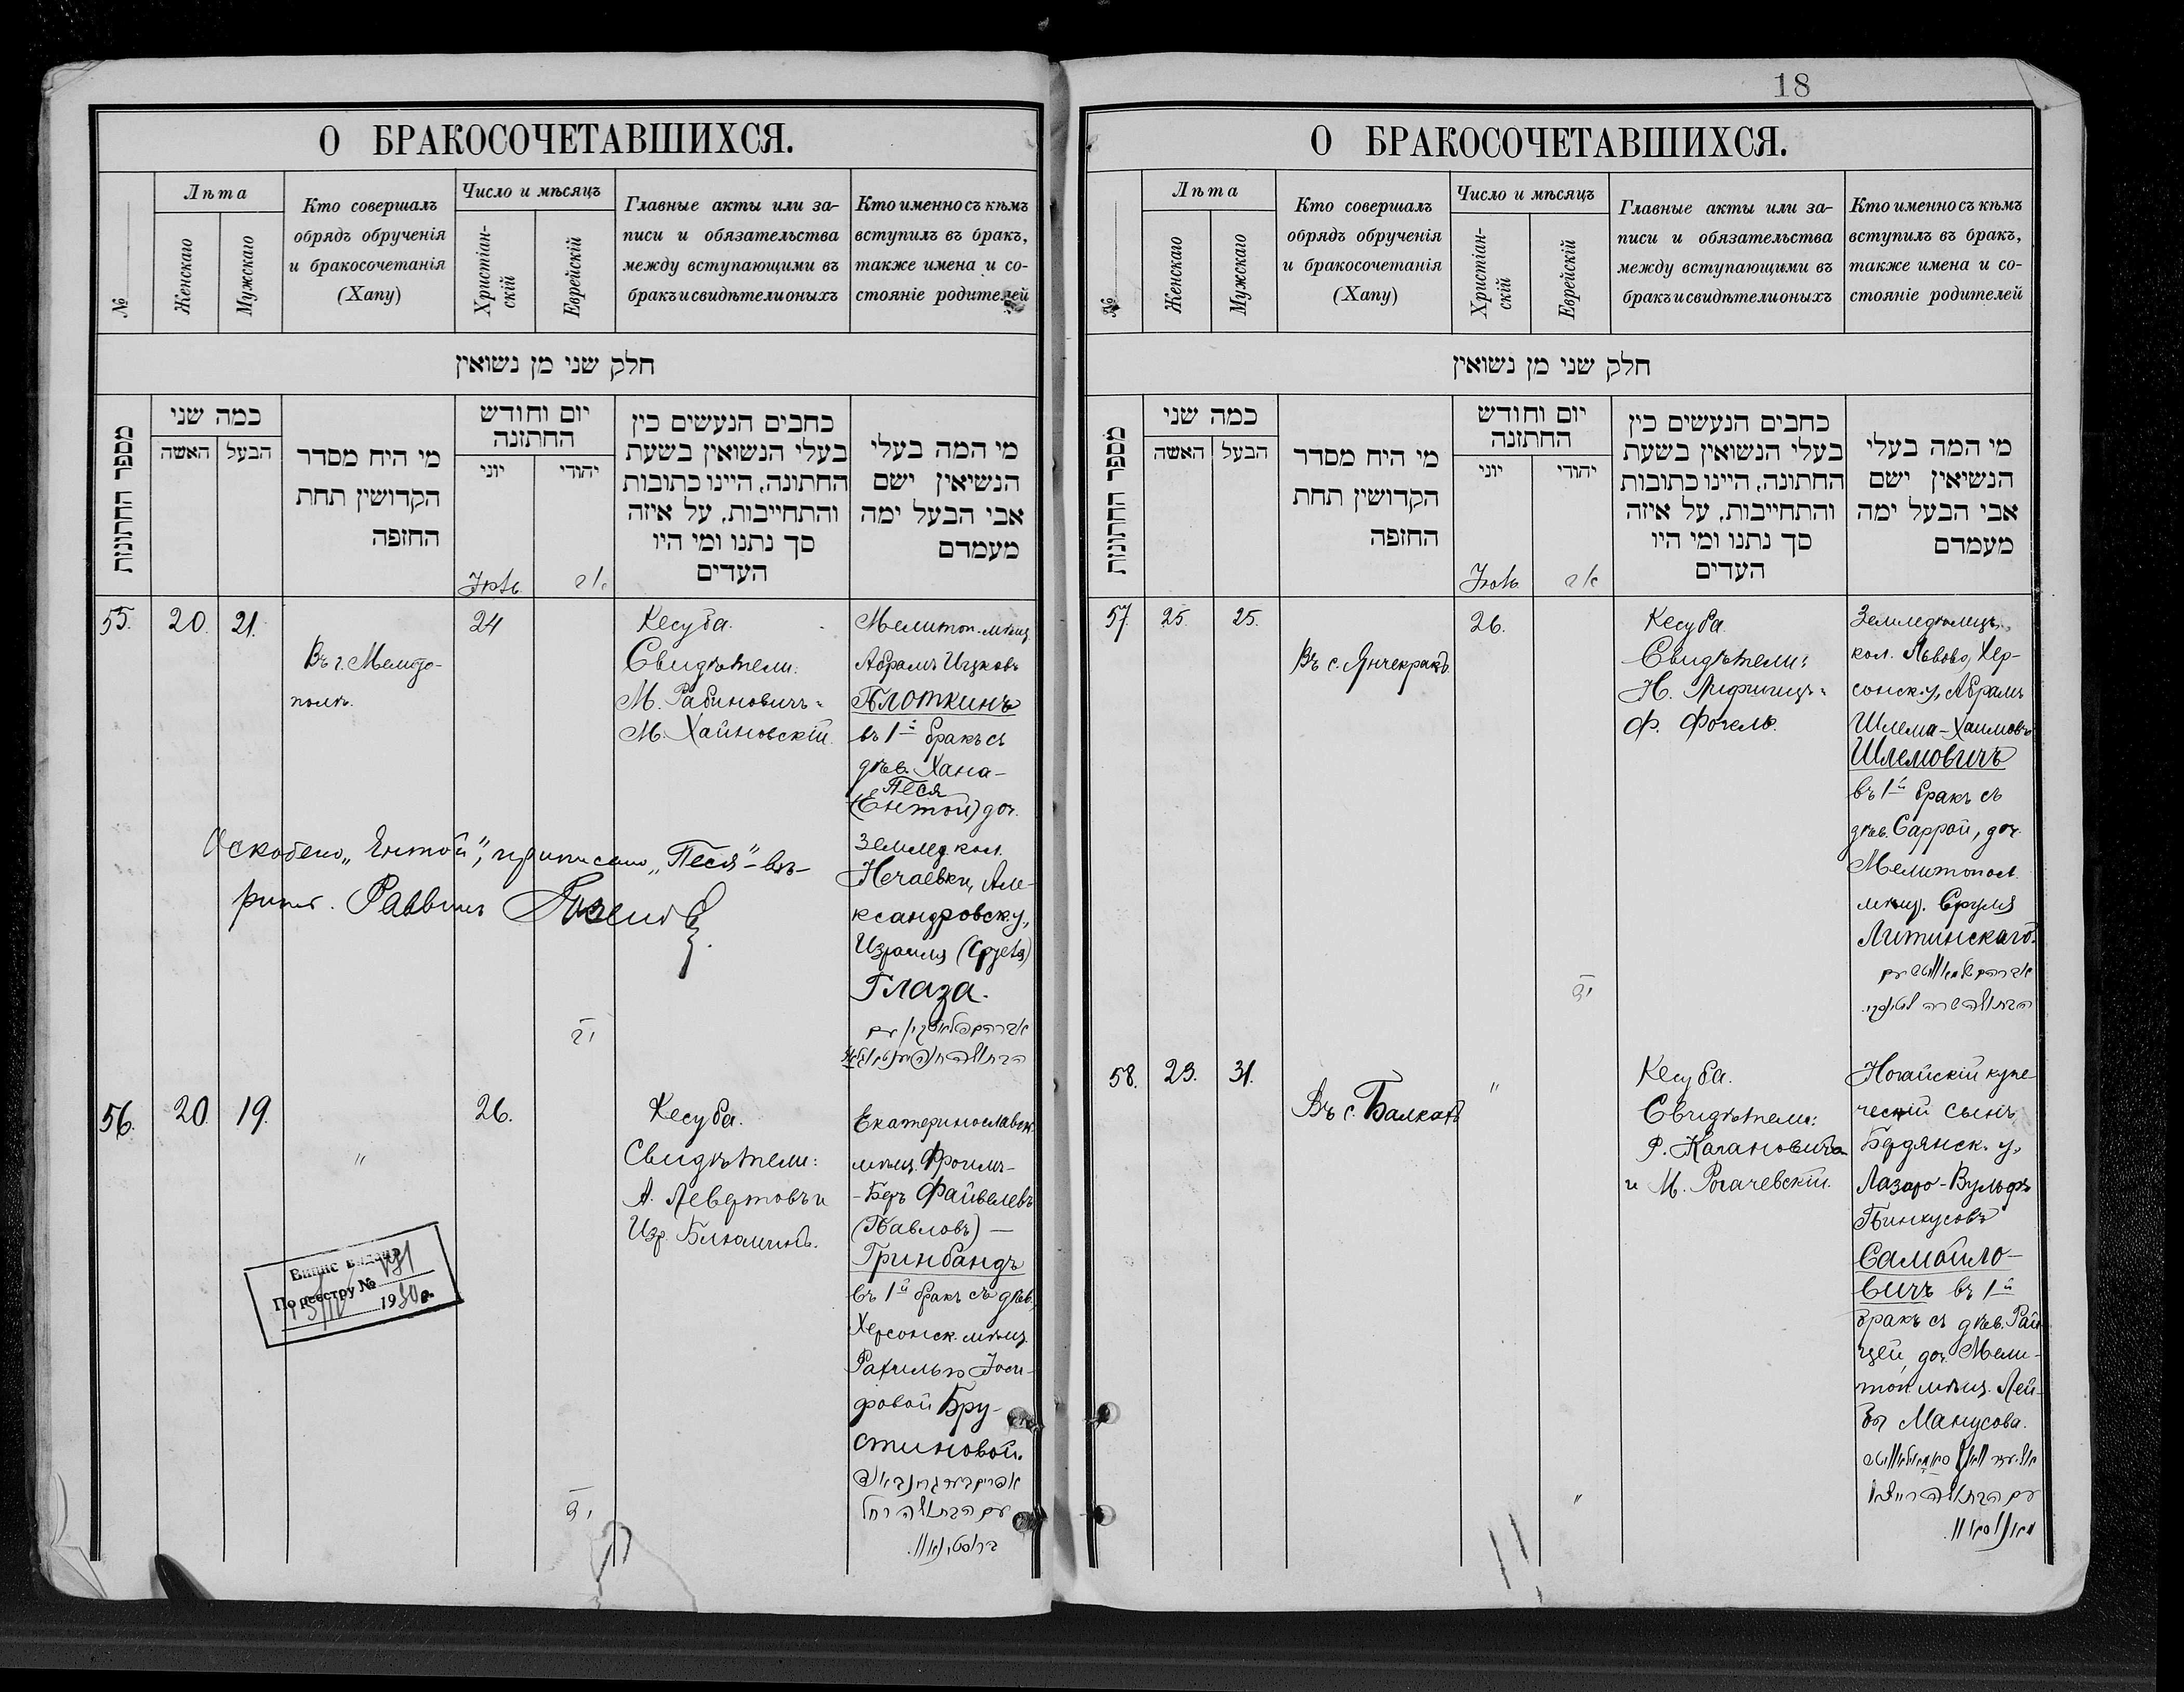 О БРАКОСОЧЕТАВШИХСЯ.
№
Лѣта
Женскаго
Мужскаго
Кто совершалъ
обрядъ обрученія
и бракосочетанія
(Хапу)
Число и мѣсяцъ
Христіан-
скій
Еврейскій
Главные акты или за-
писи и обязательства
между вступающими въ
бракъ и свидѣтели оныхъ
Кто именно съ кѣмъ
вступилъ въ бракъ,
также имена и со-
стояніе родителей
חלק שני מן נשואין
מספר החתונות
כמה שני
האשה
הבעל
מי היה מסדר
הקדושין תחת
החופה
יום וחודש
החתונה
יוני
יהודי
כתבים הנעשים בין
בעלי הנשואין בשעת
החתונה, היינו כתובות
והתחייבות, על איזה
סך נתנו ומי היו
העדים
מי המה בעלי
הנשיאין ישם
אבי הבעל ימה
מעמדם
55.
20.
21.
Въ г. Мелито-
полѣ.
24
Кесуба.
Свидѣтели.
М. Рабиновичъ
М. Хайновскій
Мелитоп. мѣщ.
Абрамъ Ицковъ
Плоткинъ
въ 1й бракъ съ
дѣв. Хана-
Песя
(Ентой) доч.
землед. кол.
Нечаевки, Але-
ксандровск. у.,
Израиля (Сруля)
Глаза.
Оскоблено „Ентой“, приписано „Песя“ – вѣ-
рить. Раввинъ
56.
20.
19.
"
26.
Кесуба.
Свидѣтели:
А. Левертовъ и
Изр. Блюминъ.
Екатеринославск.
мѣщ. Фроимъ-
-Беръ Файвелевъ
(Павловъ) —
Гринбандъ
въ 1й бракъ съ дѣв.
Херсонск. мѣщ.
Рахилью Іоси-
фовой Бру-
стиновой.
По реестру №
19
18
О БРАКОСОЧЕТАВШИХСЯ.
№
Лѣта
Женскаго
Мужскаго
Кто совершалъ
обрядъ обрученія
и бракосочетанія
(Хапу)
Число и мѣсяцъ
Христіан-
скій
Еврейскій
Главные акты или за-
писи и обязательства
между вступающими въ
бракъ и свидѣтели оныхъ
Кто именно съ кѣмъ
вступилъ въ бракъ,
также имена и со-
стояніе родителей
חלק שני מן נשואין
מספר החתונות
כמה שני
האשה
הבעל
מי היה מסדר
הקדושין תחת
החופה
יום וחודש
החתונה
יוני
יהודי
כתבים הנעשים בין
בעלי הנשואין בשעת
החתונה, היינו כתובות
והתחייבות, על איזה
סך נתנו ומי היו
העדים
מי המה בעלי
הנשיאין ישם
אבי הבעל ימה
מעמדם
57.
25.
25.
Въ с. Янчекракѣ
26.
Кесуба.
Свидѣтели:
Н.
Ф. Фогель.
Земледѣлецъ
кол. Львово, Хер-
сонск. у., Абрамъ
Шлема-Хаимовъ
Шлемовичъ
въ 1й бракъ съ
дѣв. Саррой, доч.
Мелитопол.
мѣщ. Сруля
Литинскаго.
58.
23.
31.
Въ с. Балкахъ
"
Кесуба.
Свидѣтели:
Р. Кагановичъ
и М. Рогачевскій.
Ногайскій купе-
ческій сынъ,
Бердянск. у.
Лазарь-Вульфъ
Пинкусовъ
Самойло-
вичъ въ 1й
бракъ съ дѣв. Рай-
цей, доч. Мели-
топ. мѣщ. Лей-
бы Манусова.
"